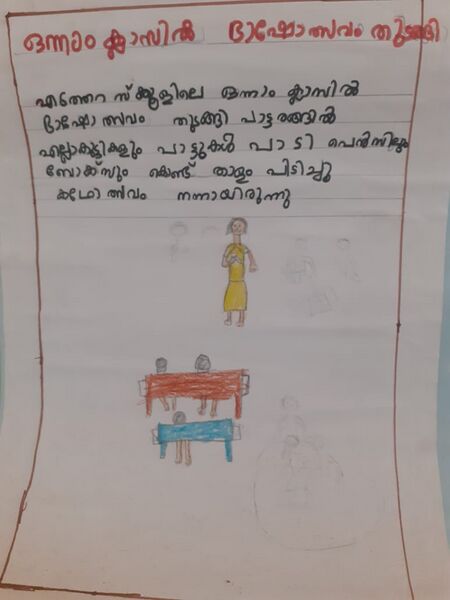 ഒന്നാം ക്ലാസിൽ ഭാഷോത്സവം തുടങ്ങി
എത്തേറ സ്ക്കൂളിലെ ഒന്നാം ക്ലാസിൽ
ഭാഷോത്സവം തുടങ്ങി പാട്ടരങ്ങിൽ
എല്ലാകുട്ടികളും പാട്ടുകൾ പാടി പെൻസിലും
ബോക്സും കൊണ്ട് താളം പിടിച്ചു
കഥോത്സവം നന്നായിരുന്നു